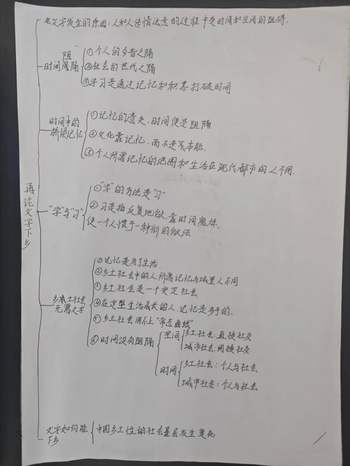 文字发生的原因:人和人传情达意的过程中受时间和空间的阻碍.
时间阻隔
①个人的今昔之隔
②社会的世代之隔
③学习是通过记忆和积累打破时间
时间中的
①记忆的丧失,时间便是阻隔
②文化靠记忆,而不是靠本能.
③个人所需记忆的范围和生活在现代都市的人不同.
再论文字下乡
"学"与"习"
①"学"的方法是"习"
②习是指反复地做,靠时间磨练,
使一个人惯于一种新的做法
乡土社会
无需文字
①记忆是为了生活
②乡土社会中的人所需记忆与城里人不同
③乡土社会是一个定型社会
④在定型生活成长的人,记忆是多余的.
⑤乡土社会用不上"常恋曲线"
⑥时间没有阻隔
空间
乡土社会:直接社交
城市社会:间接社交
时间
乡土社会:个人与社会
城市社会:个人与社会
文字如何能
下乡
中国乡土性的社会基层发生变化